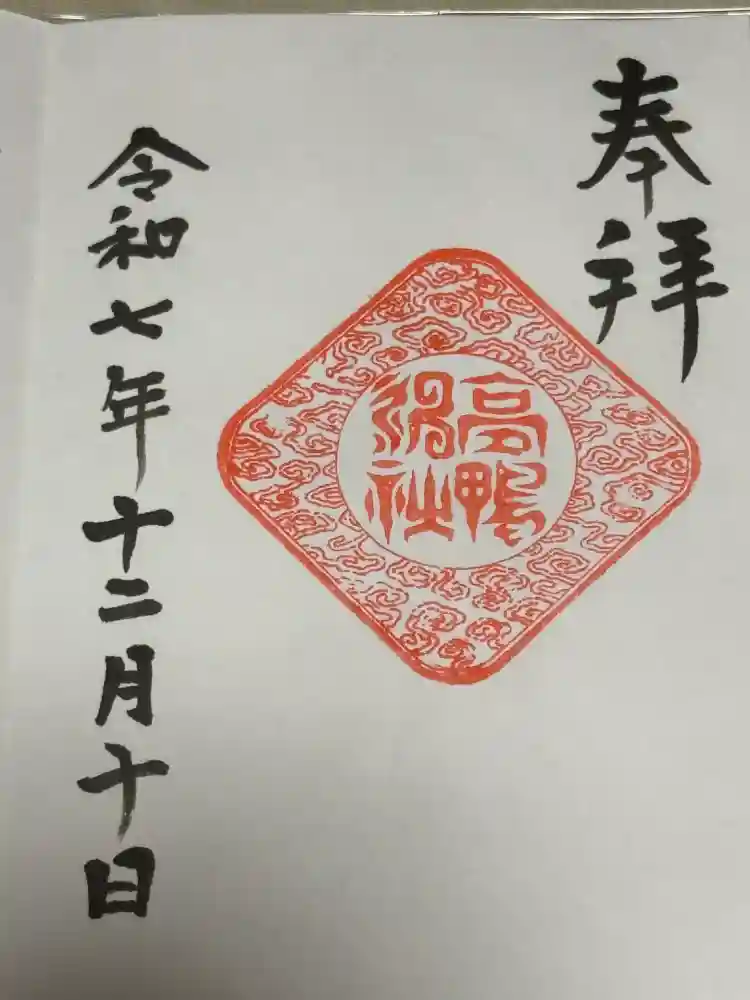 奉拝
高鴨
神社
令和七年十二月十日